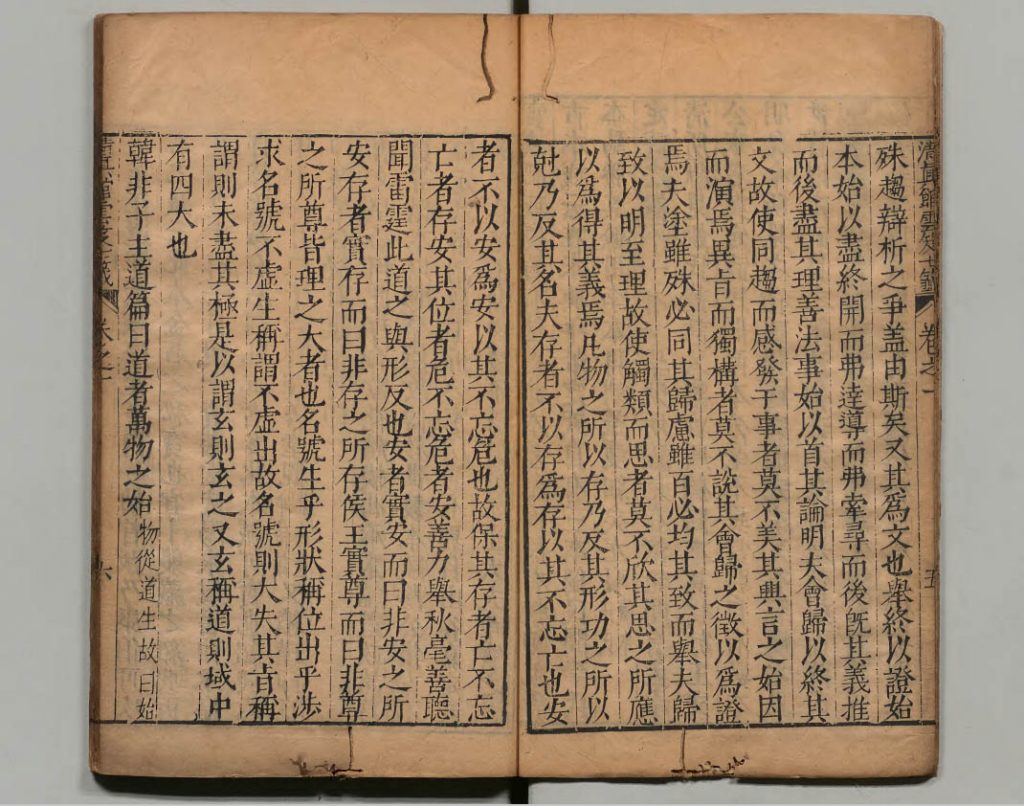 殊趨辯析之爭盖由斯矣又其爲文也舉終以證始
本始以盡終開而弗達導而弗牽尋而後旣其義推
而後盡其理善法事始以首其論明夫會歸以終其
文故使同趨而感發于事者莫不美其興言之始因
而演焉異旨而獨構者莫不說其會歸之徵以爲證
焉夫塗雖殊必同其歸慮雖百必均其致而舉夫歸
致以明至理故使觸類而思者莫不欣其思之所應
以爲得其義焉凡物之所以存乃反其形功之所以
尅乃反其名夫存者不以存爲存以其不忘亡也安
五
者不以安爲安以其不忘危也故保其存者亡不忘
亡者存安其位者危不忘危者安善力舉秋毫善聽
聞雷霆此道之與形反也安者實安而曰非安之所
安存者實存而曰非存之所存侯王實尊而曰非尊
之所尊皆理之大者也名號生乎形狀稱位出乎涉
求名號不虛生稱謂不虛出故名號則大失其旨稱
謂則未盡其極是以謂玄則玄之又玄稱道則域中
有四大也
韓非子主道篇曰道者萬物之始 物從道生故曰始
卷之一
六